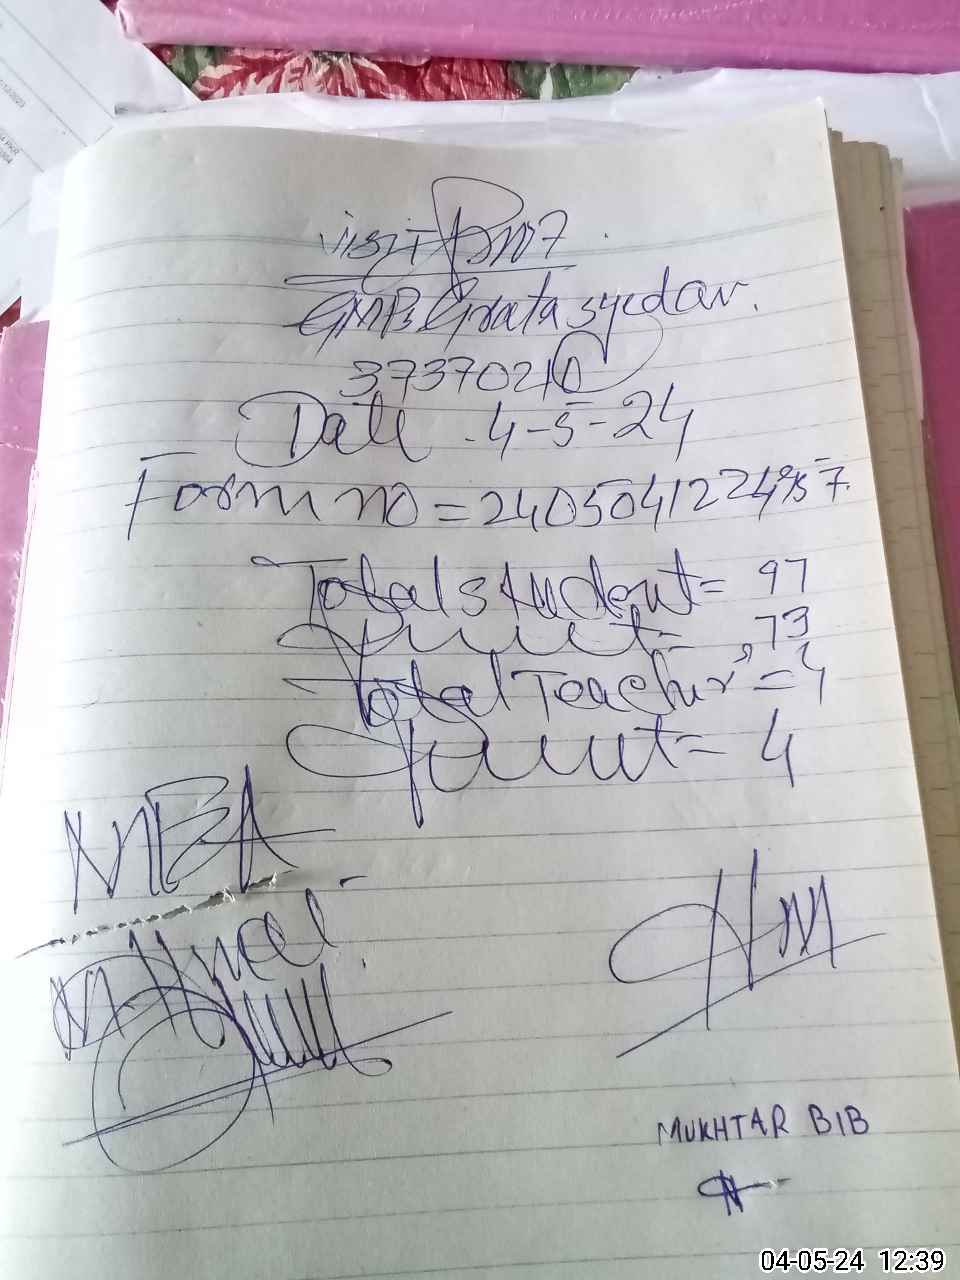 visit
GMPS Grata syedan.
37370210
Date 4-5-24
Form no = 240504122
Total student = 97
Present = 73
Total Teacher's = 4
Present = 4
MEA
HM
MUKHTAR BIB
04-05-24 12:39